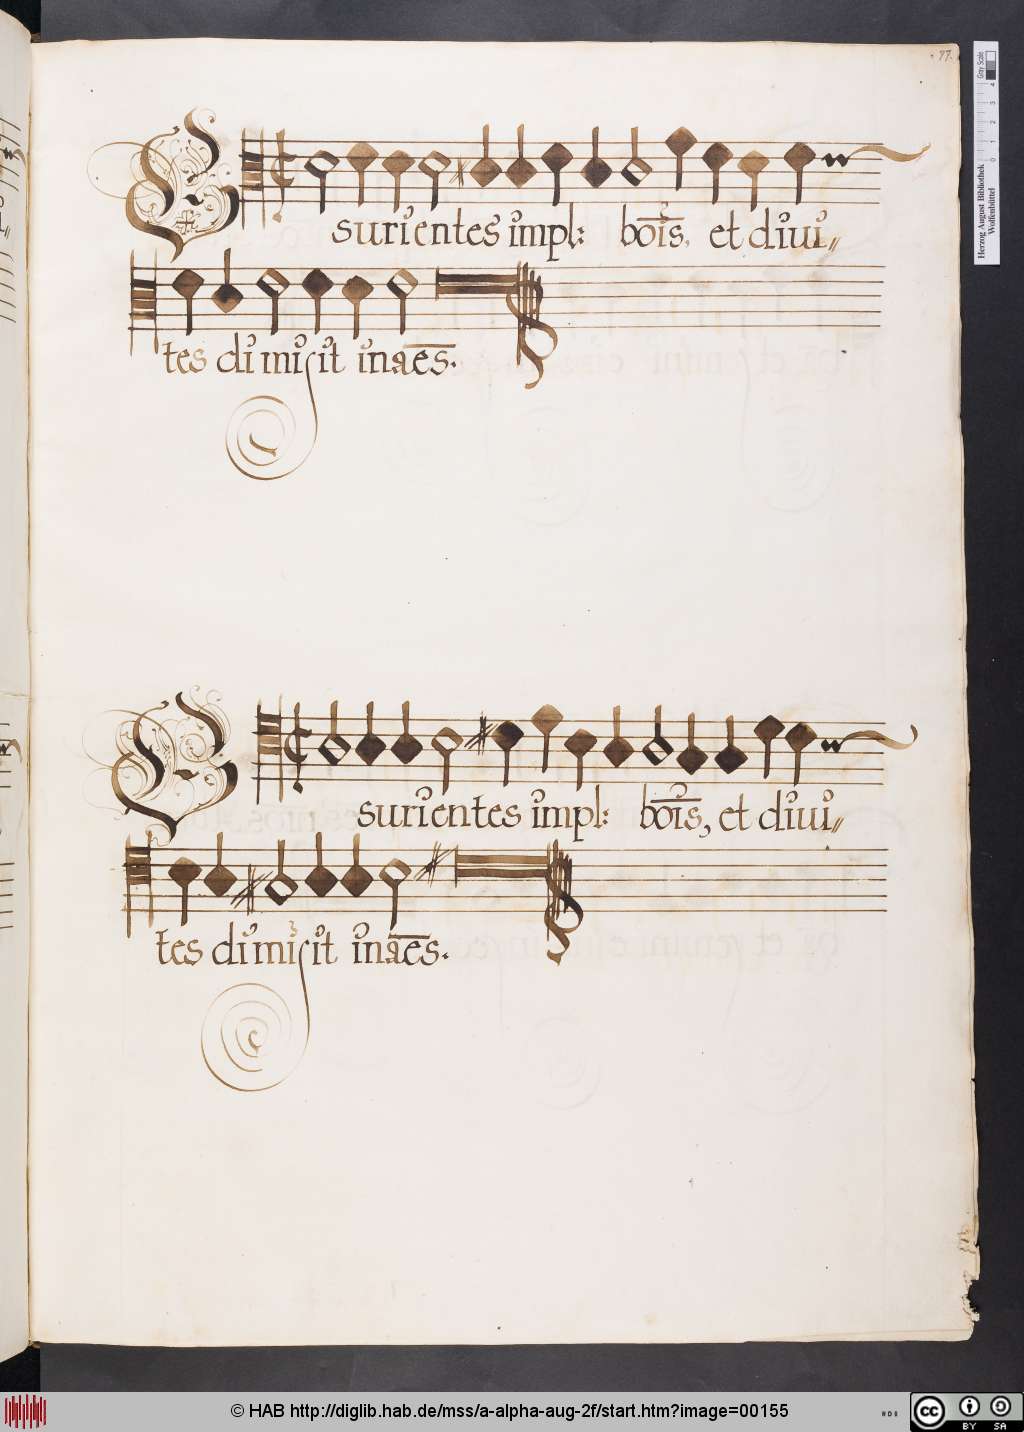 77.
Esurientes impl: bōis, et diui〃
tes dimisit inaēs.
Esurientes impl: bōis, et diui〃
tes dimisit inaēs.
Herzog August Bibliothek
Wolfenbüttel
0 1 2 3 4
Gray Scale
© HAB http://diglib.hab.de/mss/a-alpha-aug-2f/start.htm?image=00155
cc BY SA